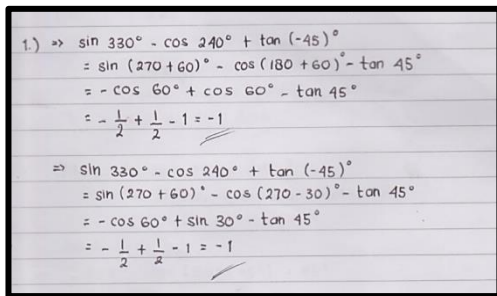 1.) ⇒ sin 330° - cos 240° + tan (-45)°
= sin (270 + 60)° - cos (180 + 60)° - tan 45°
= - cos 60° + cos 60° - tan 45°
= - 1/2 + 1/2 - 1 = -1
⇒ sin 330° - cos 240° + tan (-45)°
= sin (270 + 60)° - cos (270 - 30)° - tan 45°
= - cos 60° + sin 30° - tan 45°
= - 1/2 + 1/2 - 1 = -1